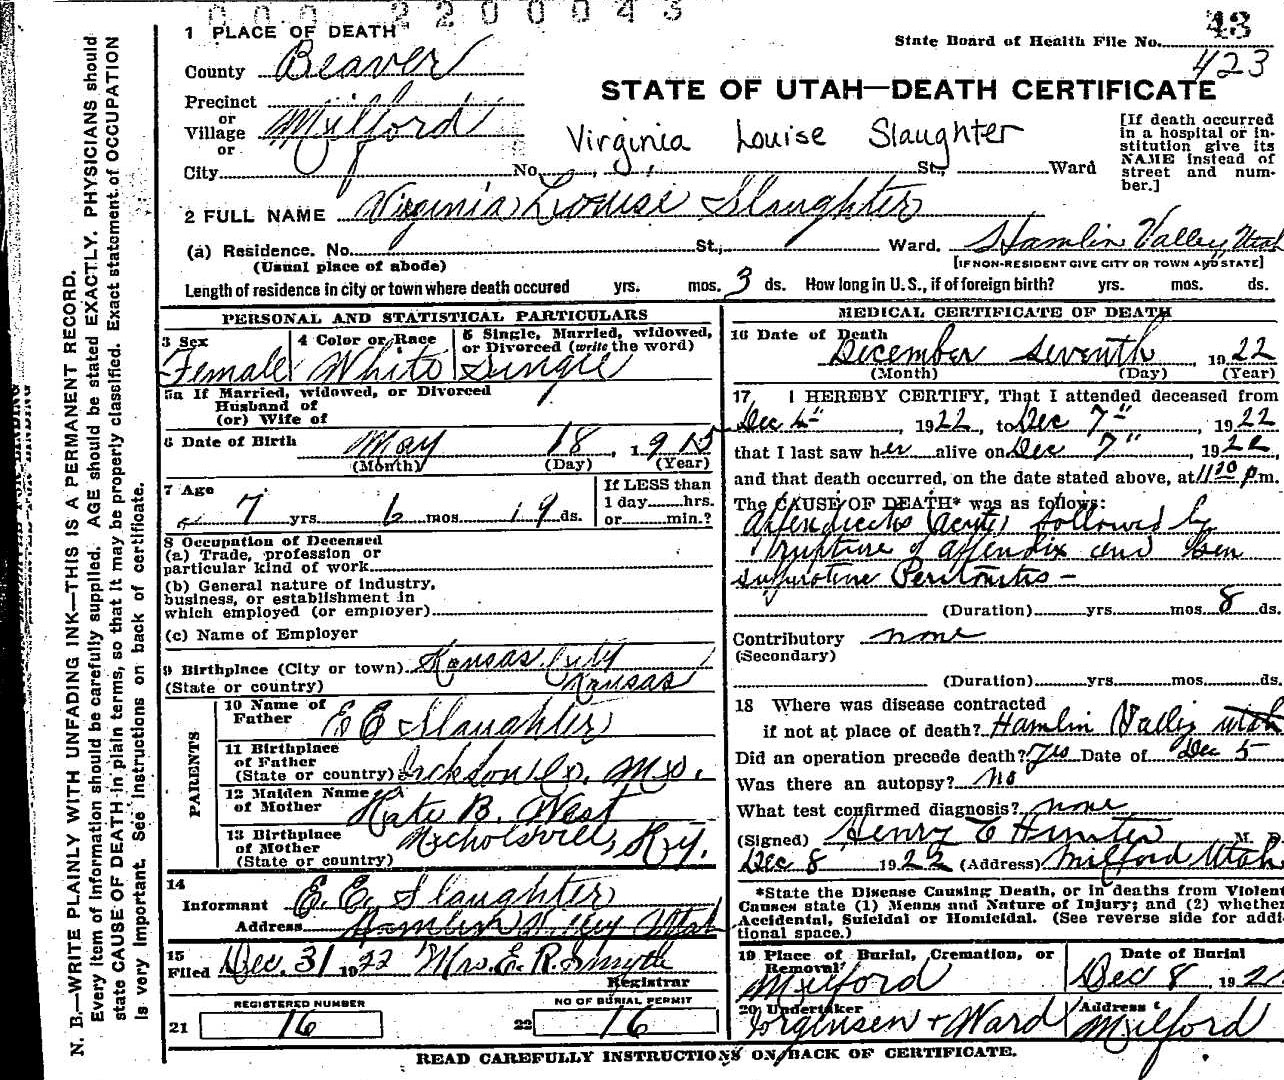 000 2200043
43
1 PLACE OF DEATH
State Board of Health File No.
423
County Beaver
STATE OF UTAH—DEATH CERTIFICATE
Precinct
or
Village Milford
or
City No. St., Ward
Virginia Louise Slaughter
[If death occurred in a hospital or institution give its NAME instead of street and number.]
2 FULL NAME Virginia Louise Slaughter
(a) Residence. No. St., Ward. Hamlin Valley, Utah
(Usual place of abode) [IF NON-RESIDENT GIVE CITY OR TOWN AND STATE]
Length of residence in city or town where death occured yrs. mos. 3 ds. How long in U. S., if of foreign birth? yrs. mos. ds.
PERSONAL AND STATISTICAL PARTICULARS
3 Sex
Female
4 Color or Race
White
5 Single, Married, widowed, or Divorced (write the word)
Single
5a If Married, widowed, or Divorced
Husband of
(or) Wife of
6 Date of Birth May 18, 1915
(Month) (Day) (Year)
7 Age
7 yrs 6 mos 19 ds.
If LESS than
1 day hrs.
or min.?
8 Occupation of Deceased
(a) Trade, profession or
particular kind of work
(b) General nature of industry,
business, or establishment in
which employed (or employer)
(c) Name of Employer
9 Birthplace (City or town) Kansas City
(State or country) Kansas
PARENTS
10 Name of Father E E Slaughter
11 Birthplace of Father
(State or country) Jackson Co. Mo.
12 Maiden Name of Mother Kate B. West
13 Birthplace of Mother
(State or country) Nicholsvill, Ky.
14
Informant E. E. Slaughter
Address Hamlin Valley Utah
15
Filed Dec. 31 1922 Mrs. E. R. Smyth
Registrar
REGISTERED NUMBER
21 16
NO OF BURIAL PERMIT
22 16
MEDICAL CERTIFICATE OF DEATH
16 Date of Death
December seventh 1922
(Month) (Day) (Year)
17 I HEREBY CERTIFY, That I attended deceased from
Dec 4", 1922, to Dec 7", 1922
that I last saw her alive on Dec 7", 1922,
and that death occurred, on the date stated above, at 11 30 p.m.
The CAUSE OF DEATH* was as follows:
Appendicitis (acute) followed by
rupture of appendix and Gen
supurative Peritonitis -
(Duration) yrs. mos. 8 ds.
Contributory none
(Secondary)
(Duration) yrs. mos. ds.
18 Where was disease contracted
if not at place of death? Hamlin Valley Utah
Did an operation precede death? Yes Date of Dec 5
Was there an autopsy? No
What test confirmed diagnosis? none
(Signed) Henry C Hunter M. D.
Dec 8 1922 (Address) Milford Utah
*State the Disease Causing Death, or in deaths from Violent
Causes state (1) Means and Nature of Injury; and (2) whether
Accidental, Suicidal or Homicidal. (See reverse side for addi-
tional space.)
19 Place of Burial, Cremation, or Removal
Milford
Date of Burial
Dec 8, 192
20 Undertaker
Jorgensen + Ward
Address
Milford
READ CAREFULLY INSTRUCTIONS ON BACK OF CERTIFICATE.
N. B.—WRITE PLAINLY WITH UNFADING INK—THIS IS A PERMANENT RECORD.
Every item of information should be carefully supplied. AGE should be stated EXACTLY. PHYSICIANS should
state CAUSE OF DEATH in plain terms, so that it may be properly classified. Exact statement of OCCUPATION
is very important. See instructions on back of certificate.